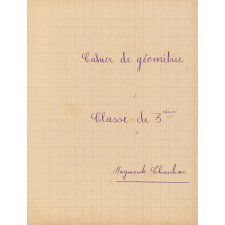 Cahier de géométrie
Classe de 3ème
Raymonde